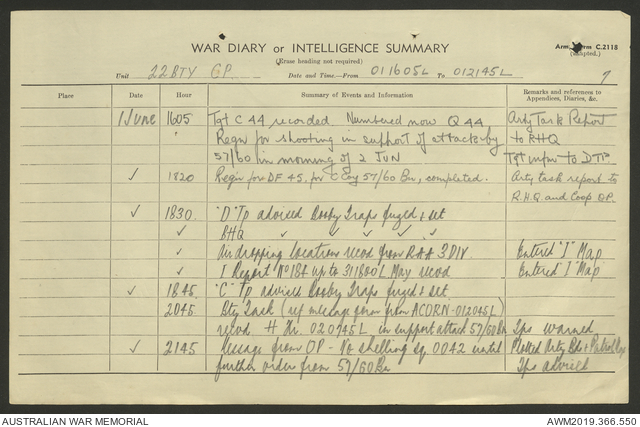 WAR DIARY or INTELLIGENCE SUMMARY
Army Form C.2118
(Erase heading not required)
(Adapted.)
Unit 22 BTY GP Date and Time.—From 011605L To 012145L
7
Place Date Hour Summary of Events and Information Remarks and references to Appendices, Diaries, &c.
1 June 1605 Tgt C 44 recorded Numbered now Q 44 Arty Task Report
" Regn for shooting in support of attack by to RHQ
57/60 in morning of 2 JUN Tgt infm to DTP
✓ 1820 Regn for DF 45, for C Coy 57/60 Bn, completed. Arty task report to
R.H.Q and Coop OP.
✓ 1830 "D" Tp advised Booby Traps fuzed & set
✓ BHQ ✓ ✓ ✓ ✓ ✓
✓ Air dropping locations recvd from RAA 3 DIV Entered "I" Map
✓ I Report No 184 up to 311800L May recvd Entered "I" Map
✓ 1845 "C" Tp advises Booby Traps fuzed & set
2045 Bty Task (ref message form from ACORN - 012045L)
recvd. H Hr. 020745L in support attack 57/60 Bn Tps warned
✓ 2145 Message from OP - No shelling sq 0042 until Plotted Arty Bd &
further orders from 57/60 Bn Tps advised
AUSTRALIAN WAR MEMORIAL AWM2019.366.550